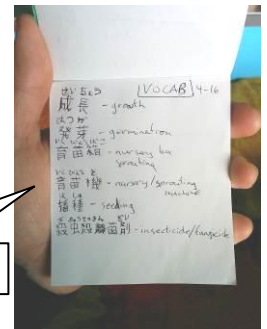 せいちょう [VOCAB] 4-16
成長 - growth
はつが
発芽 - germination
育苗箱 - nursery box
sprouting
育苗機 - nursery/sprouting
machine
はしゅ
播種 - seeding
殺虫殺菌剤 - insecticide/fungicide